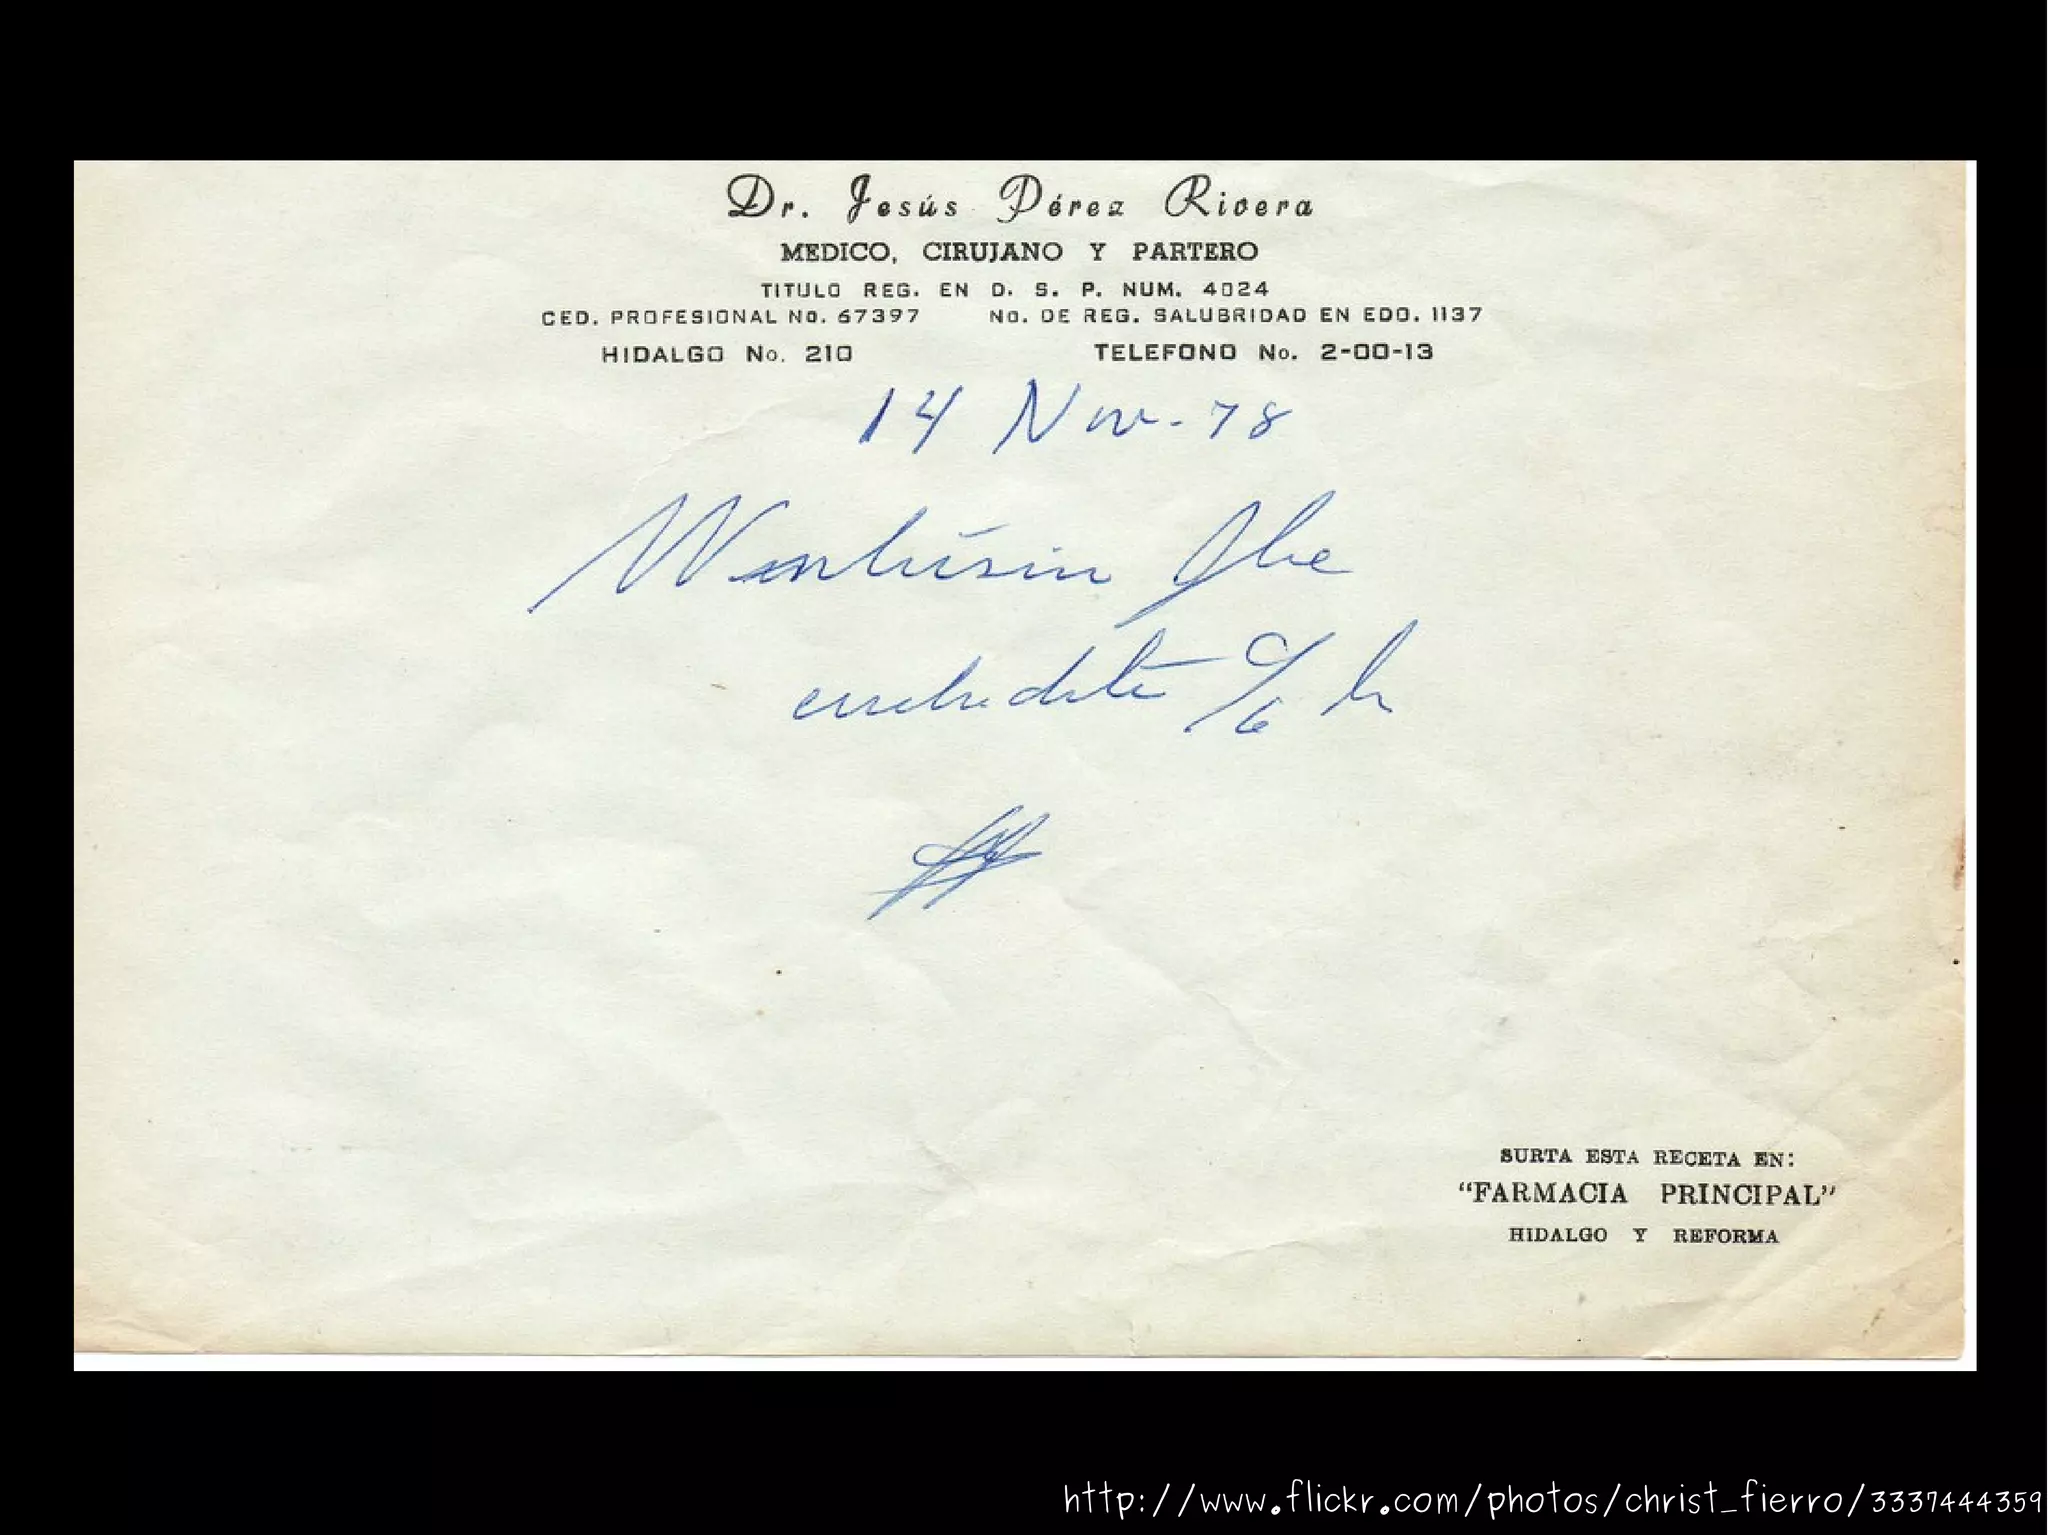 Dr. Jesús Pérez Rivera
MEDICO, CIRUJANO Y PARTERO
TITULO REG. EN D. S. P. NUM. 4024
CED. PROFESIONAL No. 67397 No. DE REG. SALUBRIDAD EN EDO. 1137
HIDALGO No. 210 TELEFONO No. 2-00-13
14 Nov-78
Jbe
c/6 h
SURTA ESTA RECETA EN:
“FARMACIA PRINCIPAL”
HIDALGO Y REFORMA
http://www.flickr.com/photos/christ_fierro/3337444359